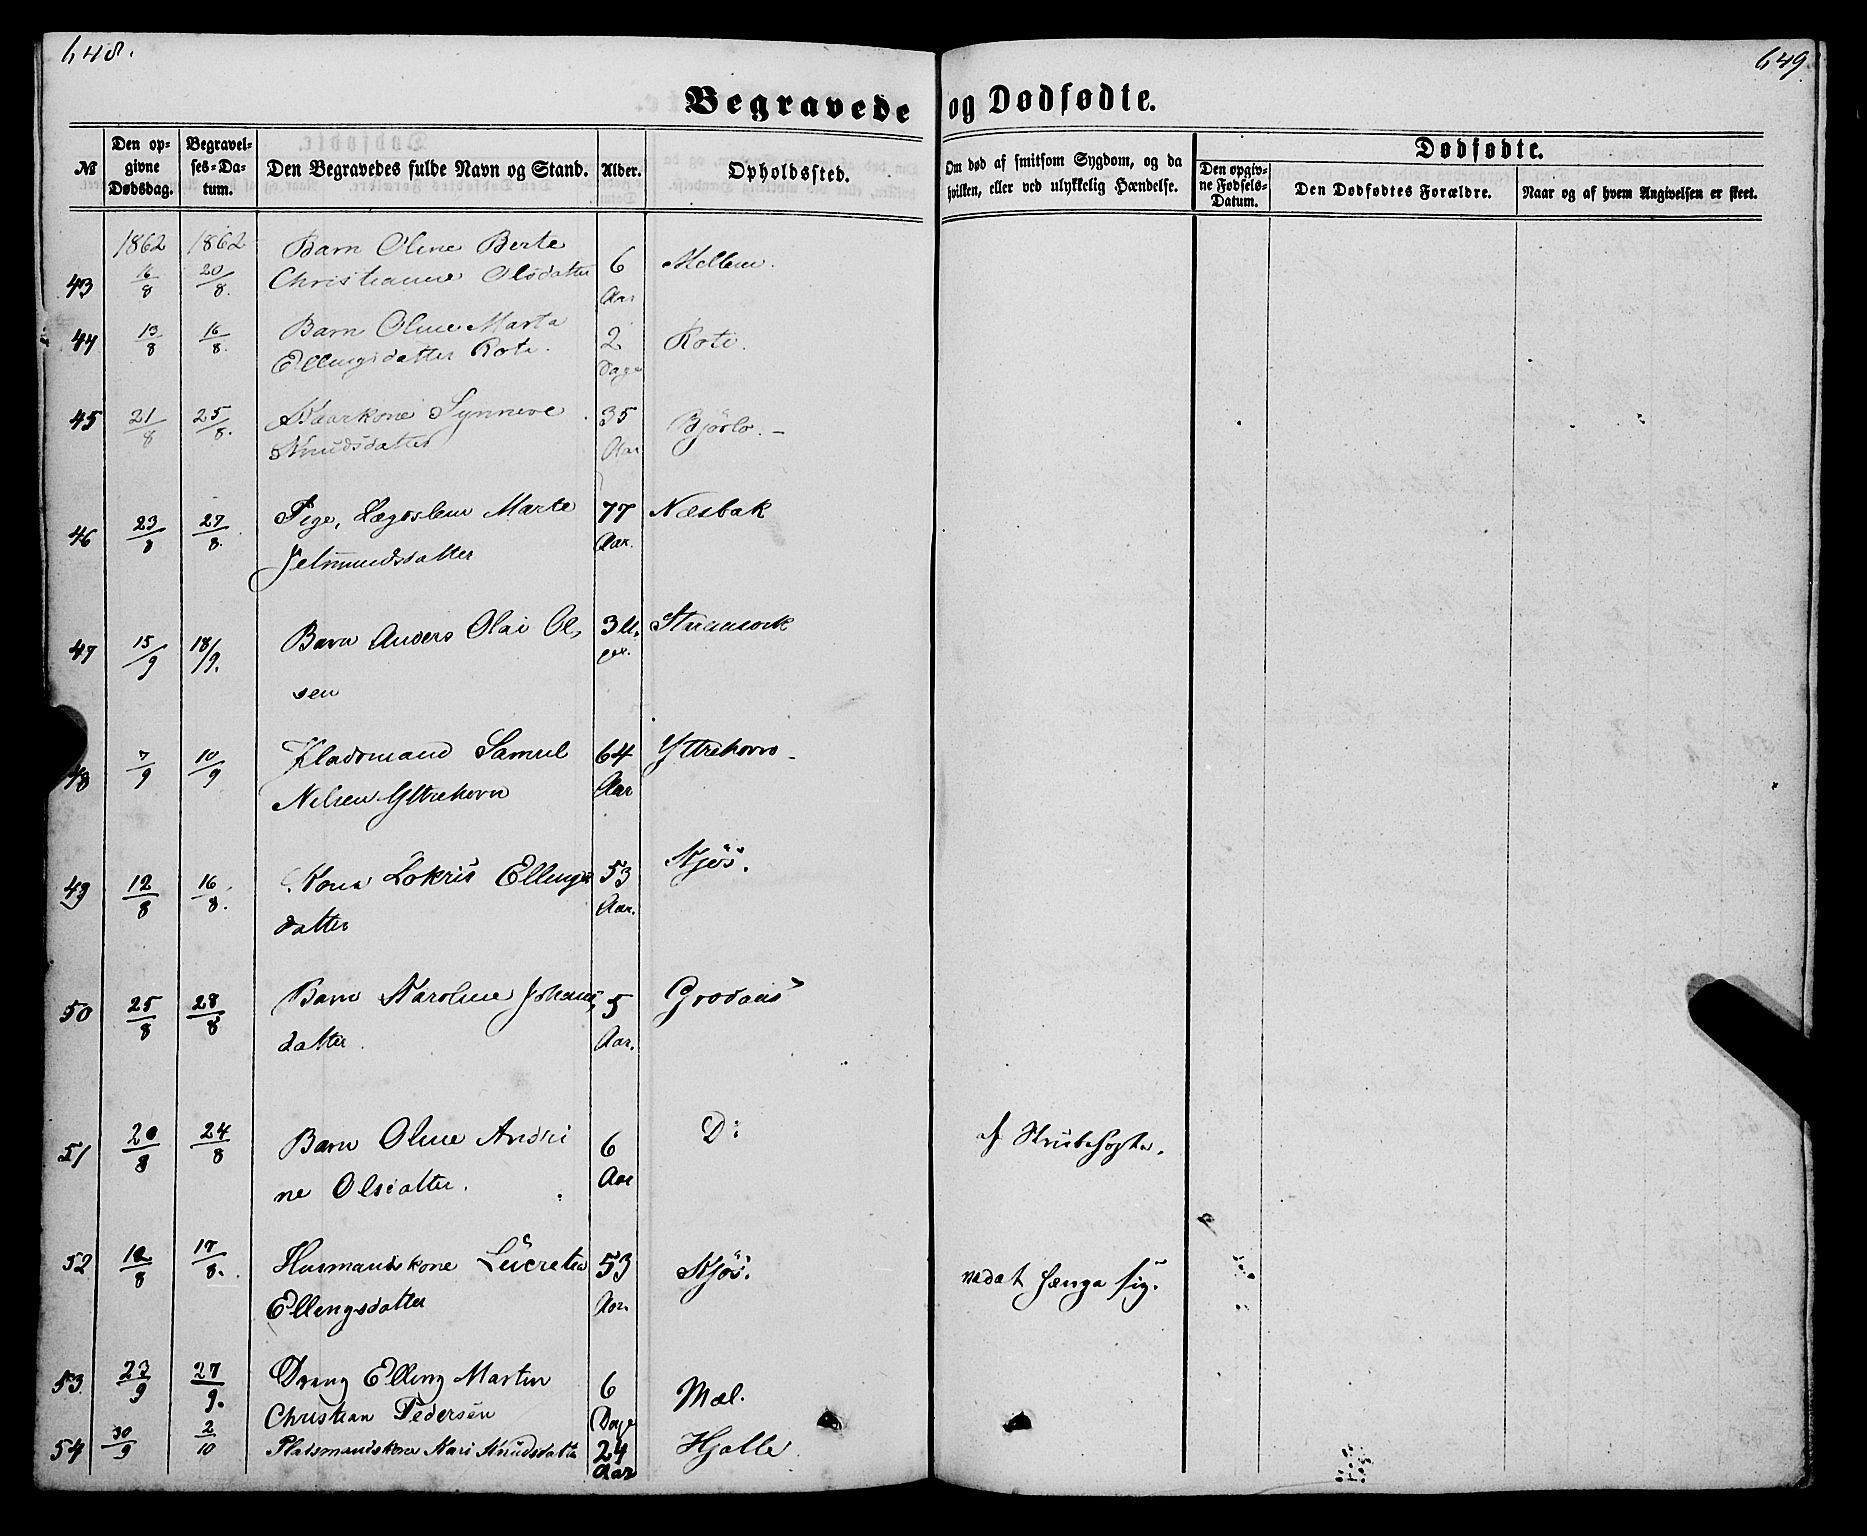 648.
649.
Begravede og Dødfødte.
№
Den opgivne Dødsdag.
Begravelses-Datum.
Den Begravedes fulde Navn og Stand.
Alder.
Opholdssted.
Om død af smitsom Sygdom, og da hvilken, eller ved ulykkelig Hændelse.
Dødfødte.
Den opgivne Fødsels-Datum.
Den Dødfødtes Forældre.
Naar og af hvem Angivelsen er skeet.
1862 1862
43 16/8 20/8. Barn Oline Berte Christianne Olsdatter 6 Aar Mellem.
44 13/8 16/8. Barn Oline Marta Ellingsdatter Roti. 2 Dage Roti.
45 21/8 25/8. Kaarkone Synneve Knudsdatter 35 Aar Bjørlo. -
46 23/8 27/8. Pige, Lægdslem Marte Jetmundsdatter 77 Aar. Næsbak
47 15/9 18/9. Barn Anders Olai Olsen 3 U
48 7/9 10/9 Pladsmand Samuel Nilsen Yttrehorn 64 Aar Yttrehorn -
49 12/8 16/8. Kone Lokris Ellingsdatter 53 Aar. Kjøs.
50 25/8 28/8 Barn Karoline Johansdatter 5 Aar. Grodaas
51 20/8 24/8 Barn Oline Andrine Olsdatter. 6 Aar D: af Strubehoste.
52 12/8 17/8. Husmandskone Lucretia Ellengsdatter 53 Aar. Kjøs. ved at hænge sig.
53 23/9 27/9. Dreng Elling Martin Christian Pedersen 6 Dage Mæl.
54 30/9 2/10 Pladsmandskone Kari Knudsdatter 24 Aar Hjelle.